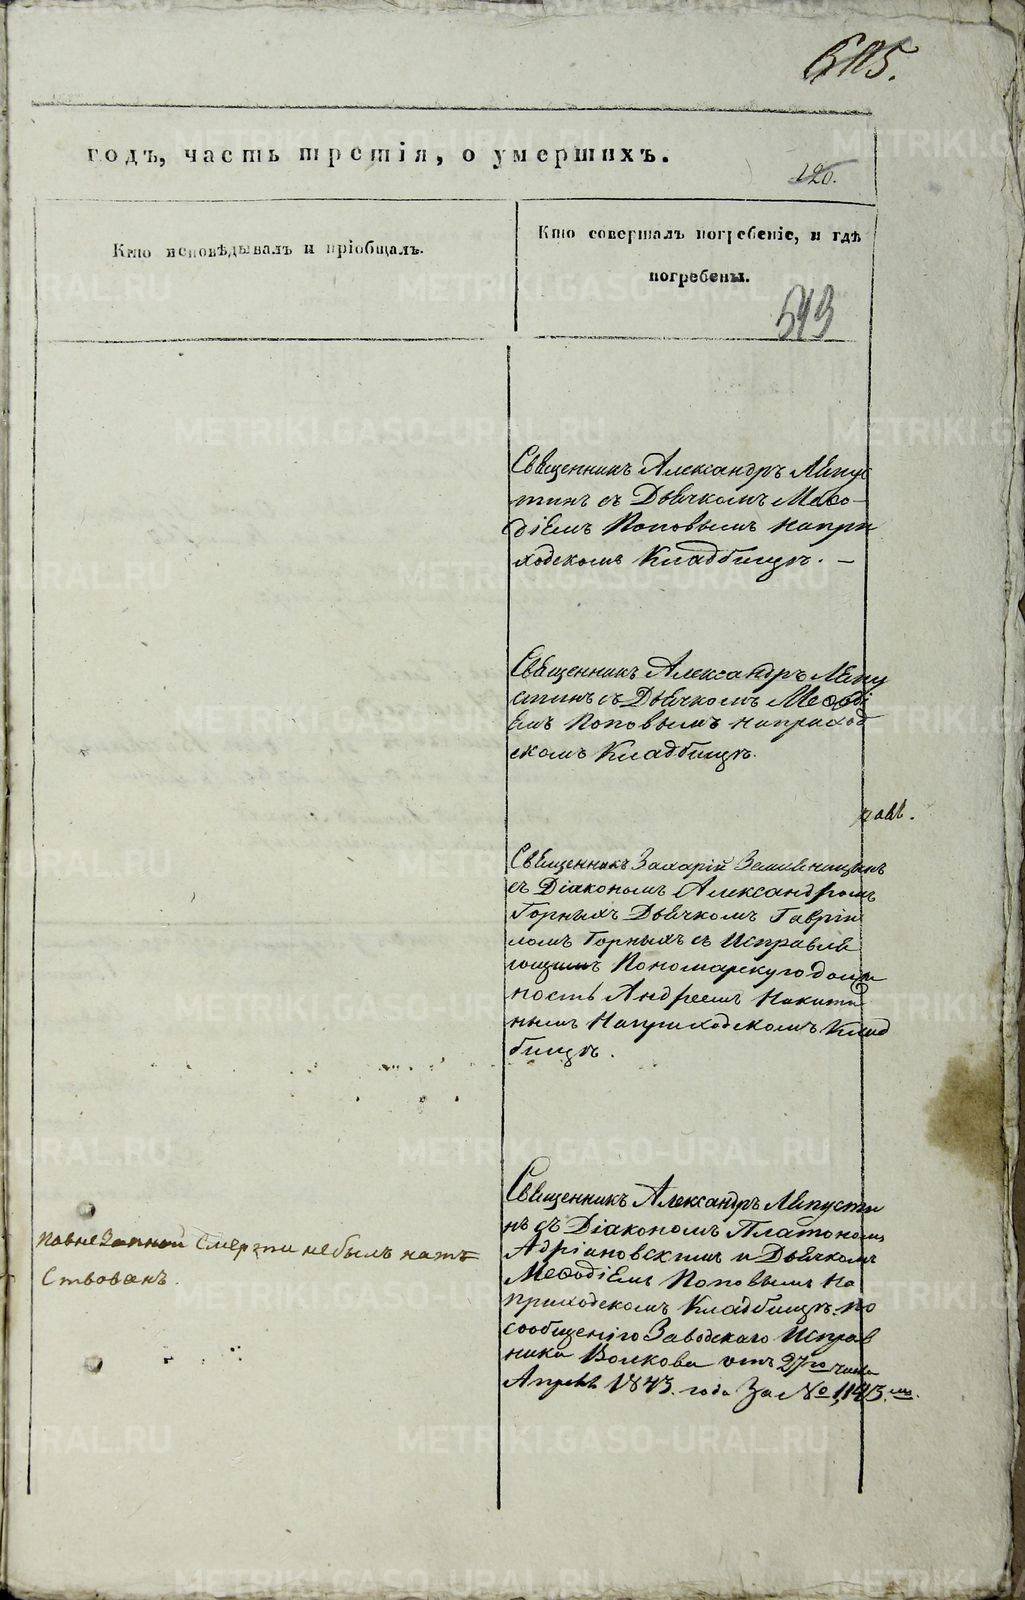 605.
годъ, часть третія, о умершихъ.
120.
Кто исповѣдывалъ и пріобщалъ.
Кто совершалъ погребеніе, и гдѣ
погребены.
593
Священникъ Александръ Лѣпус
тинъ съ Дьячкомъ Мѳѳо-
діемъ Поповымъ на при
ходскомъ Кладбищѣ. —
Священникъ Александръ Лѣпу
стинъ съ Дьячкомъ Меѳоді
емъ Поповымъ на приход
скомъ Кладбищѣ.
Священникъ Захарій
съ Діакономъ Александромъ
Горныхъ Дьячкомъ Гавріи
ломъ Горныхъ съ Исправля
ющимъ Пономарскую долж
ность Андреемъ Никити
нымъ На приходскомъ Клад
бищѣ.
Повнезапной Смерти небылъ напут
ствованъ.
Священникъ Александръ Лѣпусти
нъ съ Діакономъ Платономъ
Адріановскимъ и Дьячкомъ
Меѳодіемъ Поповымъ На
приходскомъ Кладбищѣ по
сообщенію Заводскаго Исправ
ника Волкова отъ 27го числа
Апрѣля 1843 года За № 1,143.мъ.
METRIKI.GASO-URAL.RU